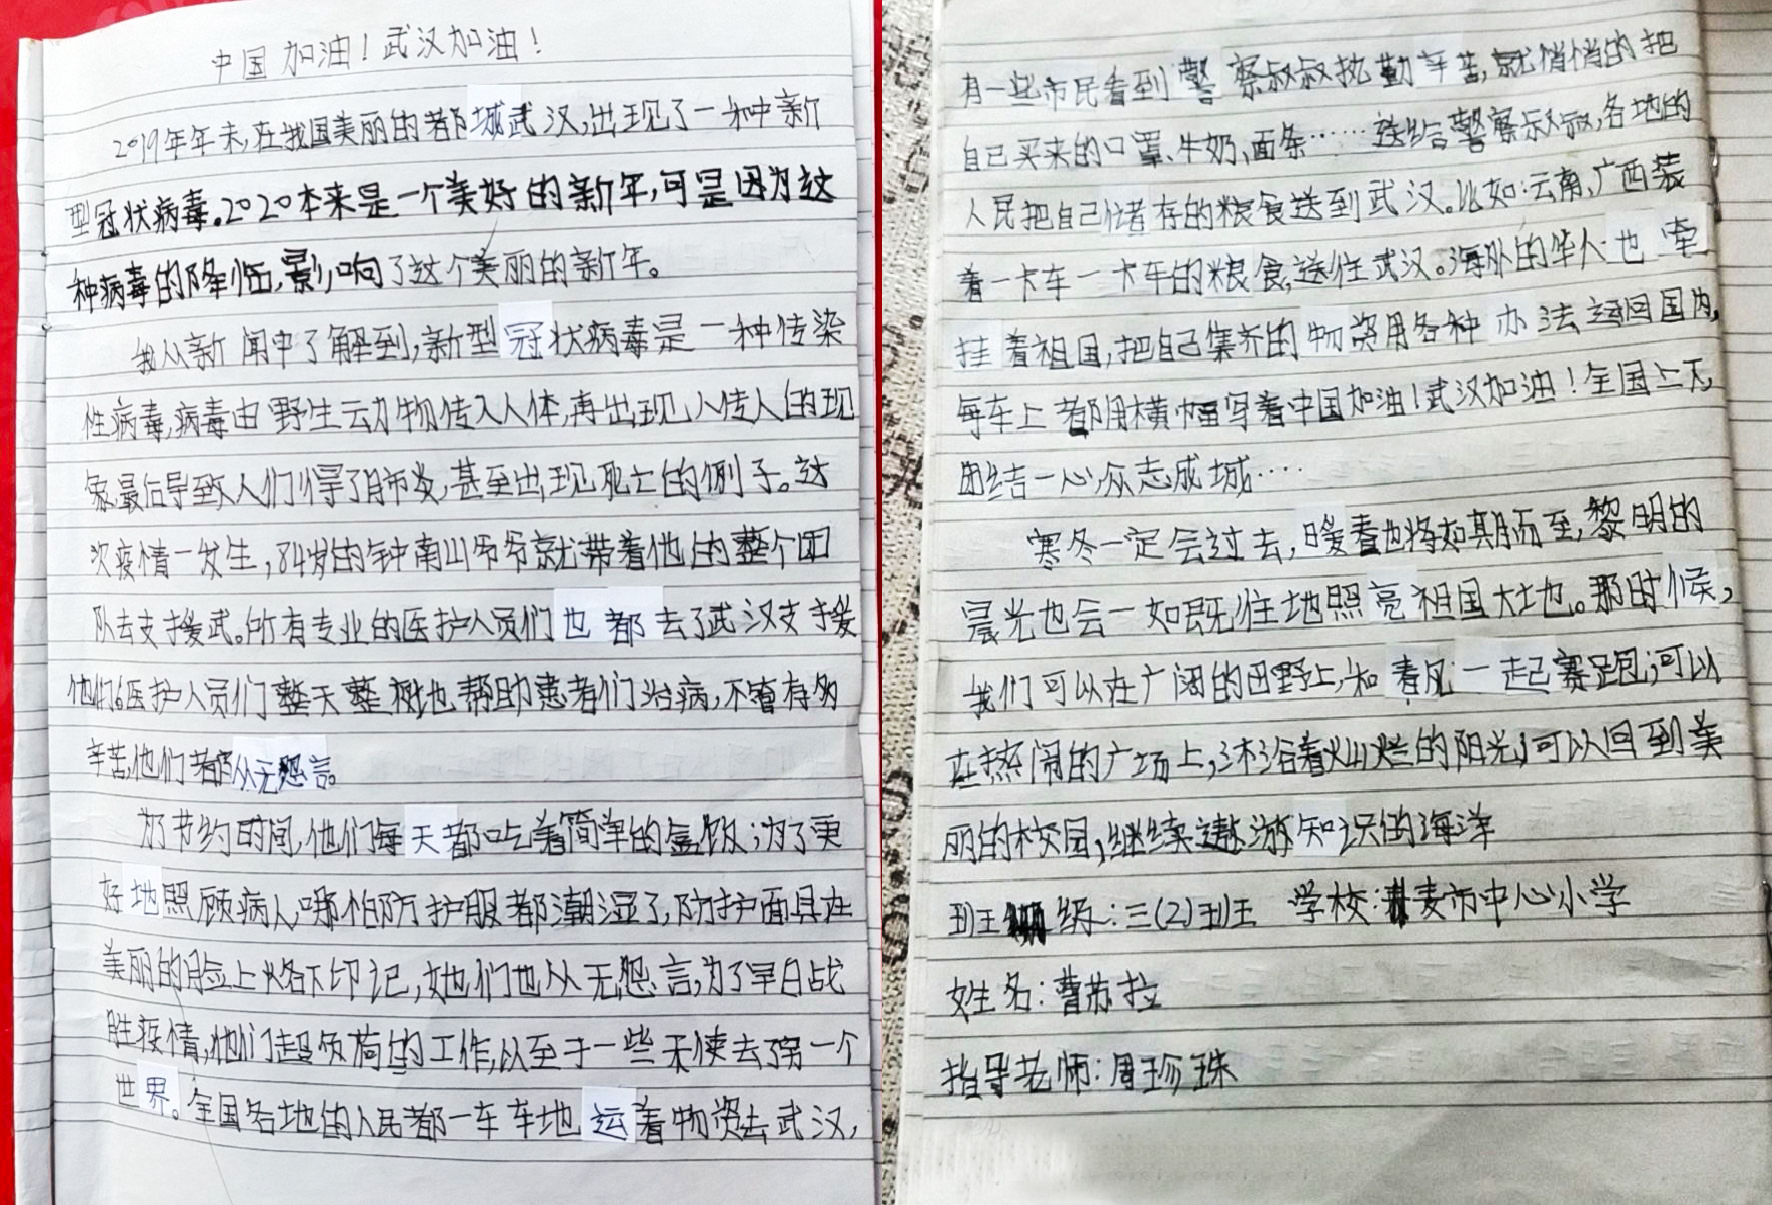 中国加油！武汉加油！
2019年年末,在我国美丽的都城武汉,出现了一种新
型冠状病毒。2020本来是一个美好的新年,可是因为这
种病毒的降临,影响了这个美丽的新年。
我从新闻中了解到,新型冠状病毒是一种传染
性病毒,病毒由野生动物传入人体,再出现人传人的现
象最后导致人们得了肺炎,甚至出现死亡的例子。这
次疫情一发生,84岁的钟南山爷爷就带着他的整个团
队去支援武。所有专业的医护人员们也都去了武汉支援
他们医护人员们整天整夜地帮助患者们治病,不管有多
辛苦,他们都从无怨言。
为节约时间,他们每天都吃着简单的盒饭;为了更
好地照顾病人,哪怕防护服都潮湿了,防护面具在
美丽的脸上烙下印记,她们也从无怨言,为了早日战
胜疫情,他们超负荷的工作,以至于一些天使去了另一个
世界。全国各地的人民都一车车地运着物资去武汉,
有一些市民看到警察叔叔执勤辛苦,就悄悄的把
自己买来的口罩、牛奶、面条……送给警察叔叔,各地的
人民把自己储存的粮食送到武汉。比如:云南、广西装
着一卡车一卡车的粮食,送往武汉。海外的华人也牵
挂着祖国,把自己集齐的物资用各种办法运回国内,
每车上都用横幅写着中国加油!武汉加油!全国上下,
团结一心众志成城····
寒冬一定会过去,暖春也将如期而至,黎明的
晨光也会一如既往地照亮祖国大地。那时候,
我们可以在广阔的田野上,和春风一起赛跑;可以
在热闹的广场上,沐浴着灿烂的阳光,可以回到美
丽的校园,继续遨游知识的海洋
班级:三(2)班 学校:麦市中心小学
姓名:曹苏拉
指导老师:周珍珠